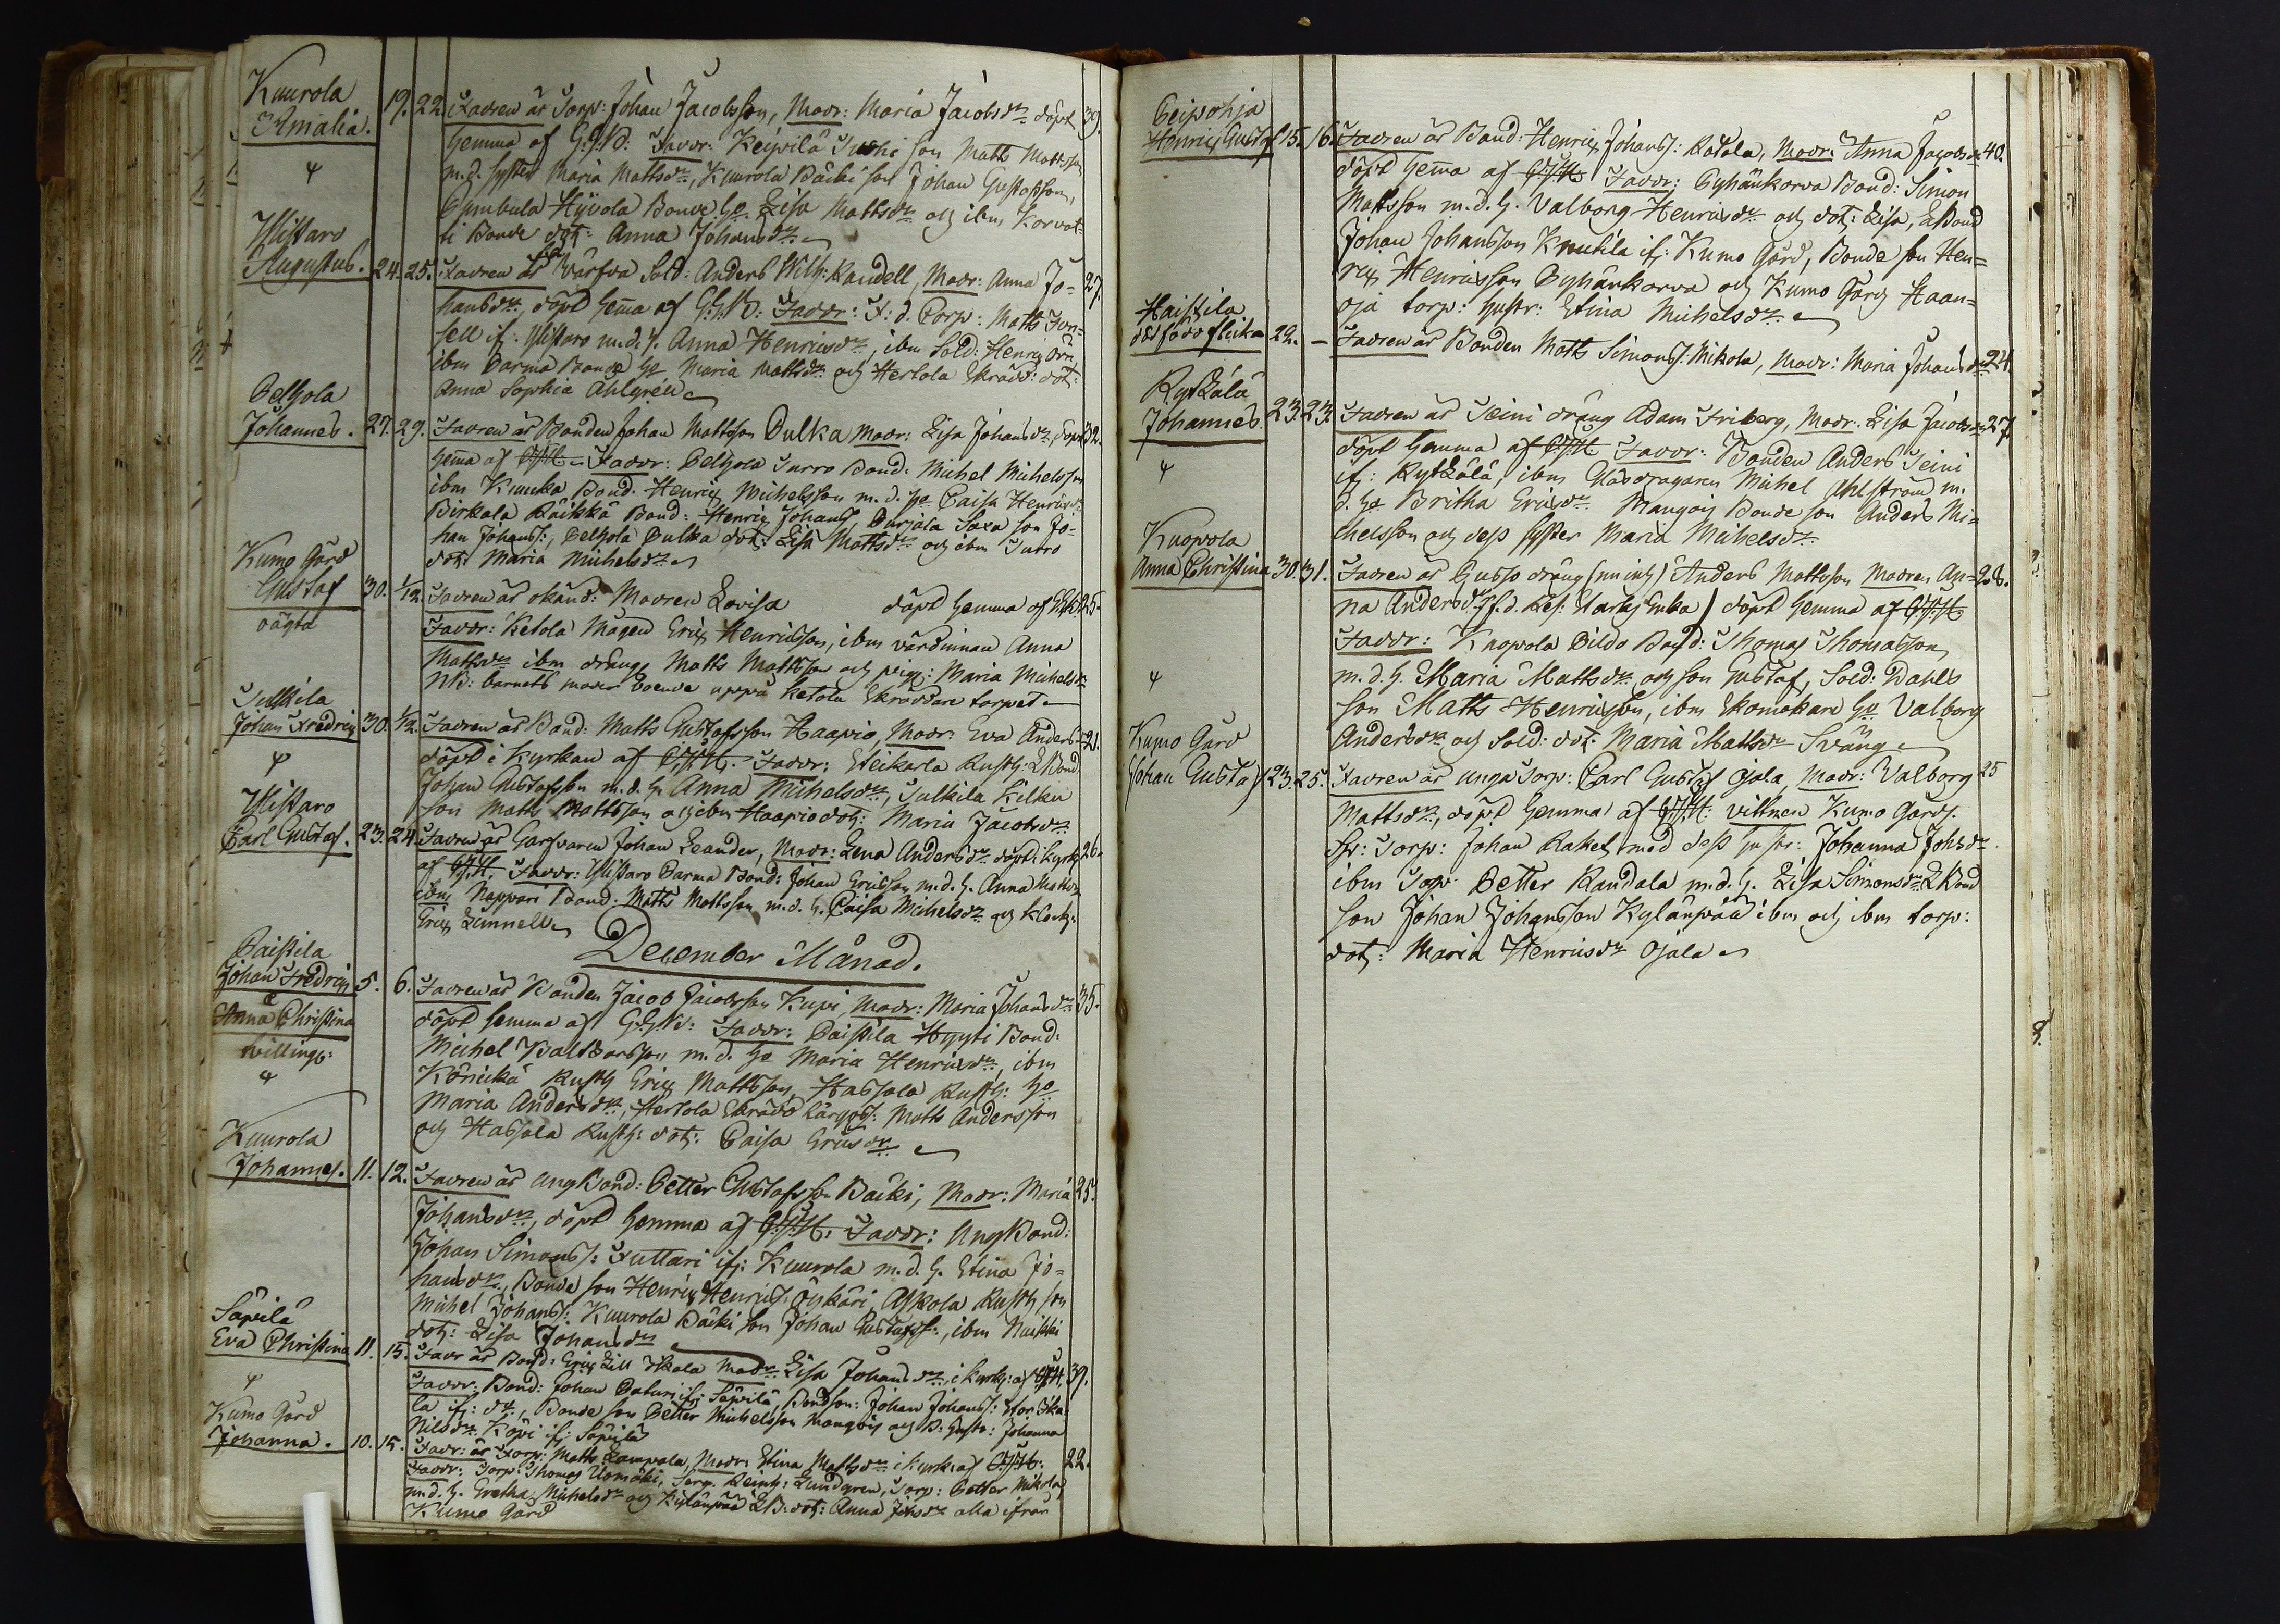 Kuurola
Amalia. 19. 22. Fadren är Torp: Johan Jacobsson, Modr: Maria Jacobsdr döpt 39.
hemma af G.G.B: Faddr: Keipilä Tuski son Matts Mattsson
m.d. syster Maria Mattsdr, Kuurola Bäcki son Johan Gustafsson,
Hyvola Bonde ho Lisa Mattsdr och ibm Korvat-
ti Bonde dot: Anna Johansdr
Ylistaro
Augustus. 24. 25. Fadren är Värfva Sold: Anders Wilh: Randell, Modr: Anna Jo= 27.
hansdr, döpt hema af G.G.B: Faddr: F:d. Corp: Matts
if. Ylistaro m.d.h. Anna Henricsdr, ibm Sold: Henric Örn,
ibm Parma Bonde ho Maria Mattsdr och Hertola Skrädd: dot:
Anna Sophia Ahlgrén
Pelhola
Johannes. 27. 29. Fadren är Bonden Johan Mattsson Pulka Modr: Lisa Johansdr, döpt 32.
hema af Faddr: Pelhola Surro Bond: Michel Michelsson
ibm Kuuka Bond. Henric Michelsson m.d. ho Caisa Henricsdr
Pirkala Räikkä Bond: Henric Johanss, Parjala Saxa son Jo-
han Johanss:, Pelhola Pulka dot: Lisa Mattsdr och ibm Surro
dot: Maria Michelsdr
Kumo Gård
Gustaf 30. 1/12. Fadren är okänd: Modren Lovisa döpt hemma af 25.
oägta
Faddr: Ketola Mågen Eric Henricsson, ibm värdinnan Anna
Mattsdr ibm dräng Matts Mattsson och pig: Maria Michelsdr
NB: barnets moder boende uppå Ketola Skräddare torpet
Sulkila
Johan Fredric 30. 1/12. Fadren är Bond: Matts Gustafsson Haapio, Modr: Eva Anders- 21.
döpt i Kyrkan af Faddr: Steikarla Rusth: Bond
Johan Gustafsson m.d. h. Anna Michelsdr, Sulkila Kilku
son Matts Mattsson och ibm Haapio dot: Maria Jacobsdr
Ylistaro
Carl Gustaf. 23. 24. Fadren är Garfvaren Johan Leander, Modr: Lena Andersdr döpt i kyrk. 26.
af Faddr: Ylistaro Parma Bond: Johan Ericsson m.d.h. Anna Mattsdr
ibm Nappari Bond. Matts Mattsson m.d. h. Caisa Michelsdr och Klock:
Eric Linnell
December Månad.
Paistila
Johan Fredric 5. 6. Fadren är Bonden Jacob Jacobsson Kupi, Modr: Maria Johansdr 35.
&
Anna Christina
tvillingr:
döpt hemma af G.G.B: Faddr: Paistila Hyyti Bond:
Michel Baltzarsson m.d. ho Maria Henricsdr, ibm
Rusth Eric Mattsson, Hassala Rusth: ho
Maria Andersdr, Hertola Skrädd Matts Andersson
och Hassala Rusth: dot: Caisa Ericsdr
Kuurola
Johannes. 11. 12. Fadren är Ung Bond: Petter Gustafsson Bäcki, Modr: Maria 25.
Johansdr, döpt hemma af Faddr: Ung Bond:
Johan Simonss: Tuttari if: Kuurola m.d. h. Stina Jo=
hansdr, Bonde son Henric Henricss: Öykäri Askola Rusth son
Michel Johanss: Kuurola Bäcki son Johan Gustafss:, ibm
dot: Lisa Johansdr
Säpilä
Eva Christina 11. 15. Fadr är Bond: Eric Lill Ikala Modr: Lisa Johansdr, i kyrk: af 39.
Faddr: Bond: Johan if: Säpilä, Bondson: Johan Johanss: Stor Ika-
la if: d:, Bonde son Petter Michelsson och B: hustr: Johanna
Nilsdr Köpi if: Säpilä
Kumo Gård
Johanna. 10. 15. Fadr: är Torp: Matts Lampala, Modr: Stina Mattsdr i kyrk: af 22.
Faddr: Torp: Thomas Uomäki, Serg. Lundgren, Torp: Petter Mikola
m.d. h. Gretha Michelsdr och Kylänpää dot: Anna Johsdr alla ifrån
Kumo Gård
Peipohja
Henric Gustaf 15. 16. Fadren är Bond: Henric Johanss: Ratala, Modr: Anna Jacobsdr 40.
döpt hema af Faddr: Pyhänkorva Bond: Simon
Mattsson m.d. h. Valborg Henricsdr och dot: Lisa, Bond
Johan Johansson Knutila if: Kumo Gård, Bonde son Hen=
ric Henricsson Pyhänkorva och Kumo Gård Haan=
oja torp: hustr: Stina Michelsdr
Haistila
dödfödd flicka 22. – Fadren är Bonden Matts Simonss: Mikola, Modr: Maria Johansdr 24.
Ryskälä
Johannes 23. 23. Fadren är Seini dräng Adam Friberg, Modr. Lisa Jacobsdr 27.
döpt hemma af Faddr: Bonden Anders Seini
if: Ryskälä, ibm Michel Ahlström m.
d. ho Britha Ericsdr Bonde son Anders Mi=
chelsson och dess syster Maria Michelsdr
Kuopola
Anna Christina 30. 31. Fadren är Gusso dräng (nu inh) Anders Mattsson Modren An= 28.
na Andersdr döpt hemma af
Faddr: Kuopola Pildo Bond: Thomas Thomasson
m.d. h. Maria Mattsdr och son Gustaf, Sold: Dahls
son Matts Henricsson, ibm Skomakare ho Valborg
Andersdr och Sold: dot: Maria Mattsdr Sväng
Kumo Gård
Johan Gustaf 23. 25. Fadren är unga Torp: Carl Gustaf Ojala, Modr: Valborg 25
Mattsdr, döpt hemma af vittnen Kumo Gårds.
Torp: Johan Raket med dess hustr: Johanna Johsdr
ibm Torp: Petter Randala m.d. h. Lisa Simonsdr Bond
son Johan Johansson Kylänpää ibm och ibm torp:
dot: Maria Henricsdr Ojala